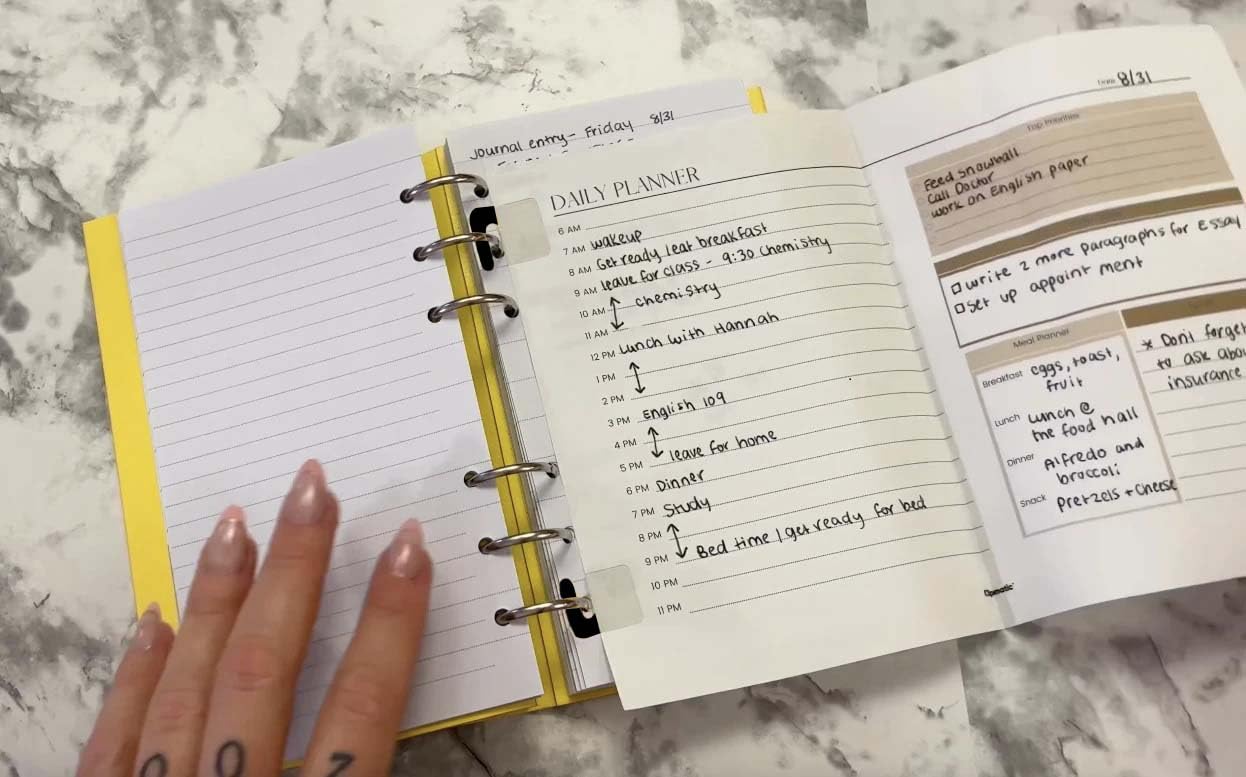 Journal entry- Friday 8/31
DAILY PLANNER
6 AM
7 AM wakeup
8 AM Get ready / eat breakfast
9 AM leave for class - 9:30 Chemistry
10 AM chemistry
11 AM
12 PM Lunch with Hannah
1 PM
2 PM
3 PM English 109
4 PM
5 PM leave for home
6 PM Dinner
7 PM Study
8 PM
9 PM Bed time / get ready for bed
10 PM
11 PM
Date 8/31
Top Priorities
Feed Snowball
Call Doctor
work on English paper
write 2 more paragraphs for Essay
Set up appointment
Meal Planner
Breakfast eggs, toast,
fruit
Lunch Lunch @
the food hall
Dinner Alfredo and
broccoli
Snack Pretzels + Cheese
* Dont forget
to ask abou
insurance